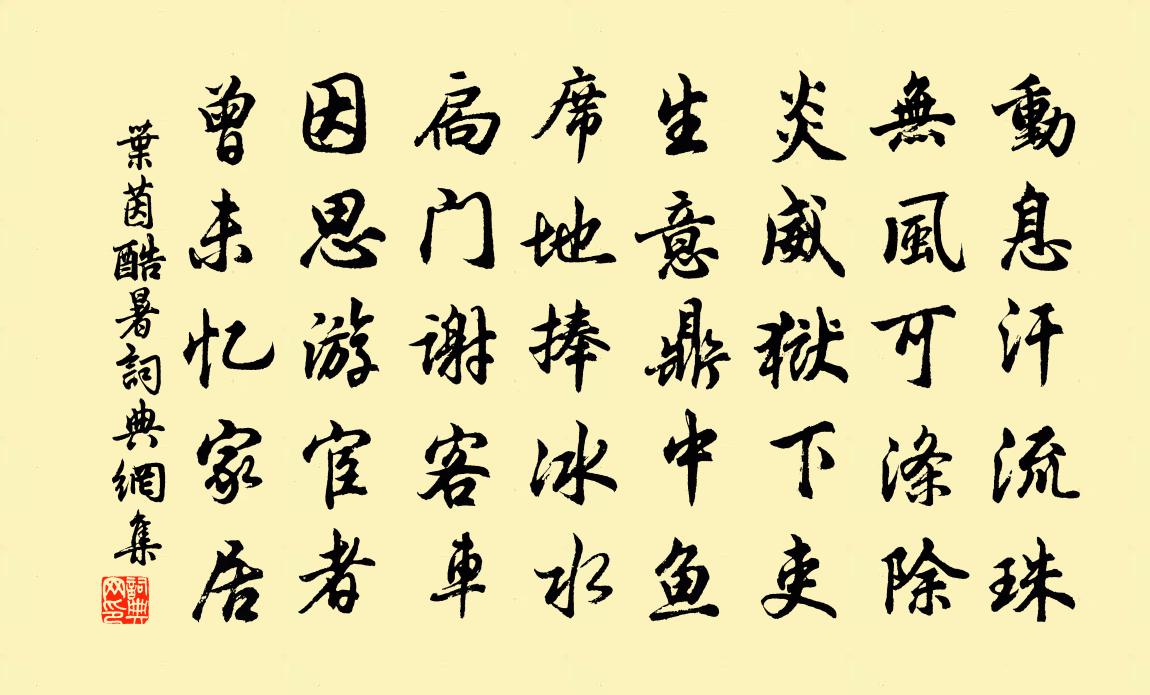 動息汗流珠
無風可滌除
炎威獄下吏
生意鼎中魚
席地捧冰水
扃門謝客車
因思游宦者
曾未忆家居
葉茵酷暑詞典網集
詞典網印